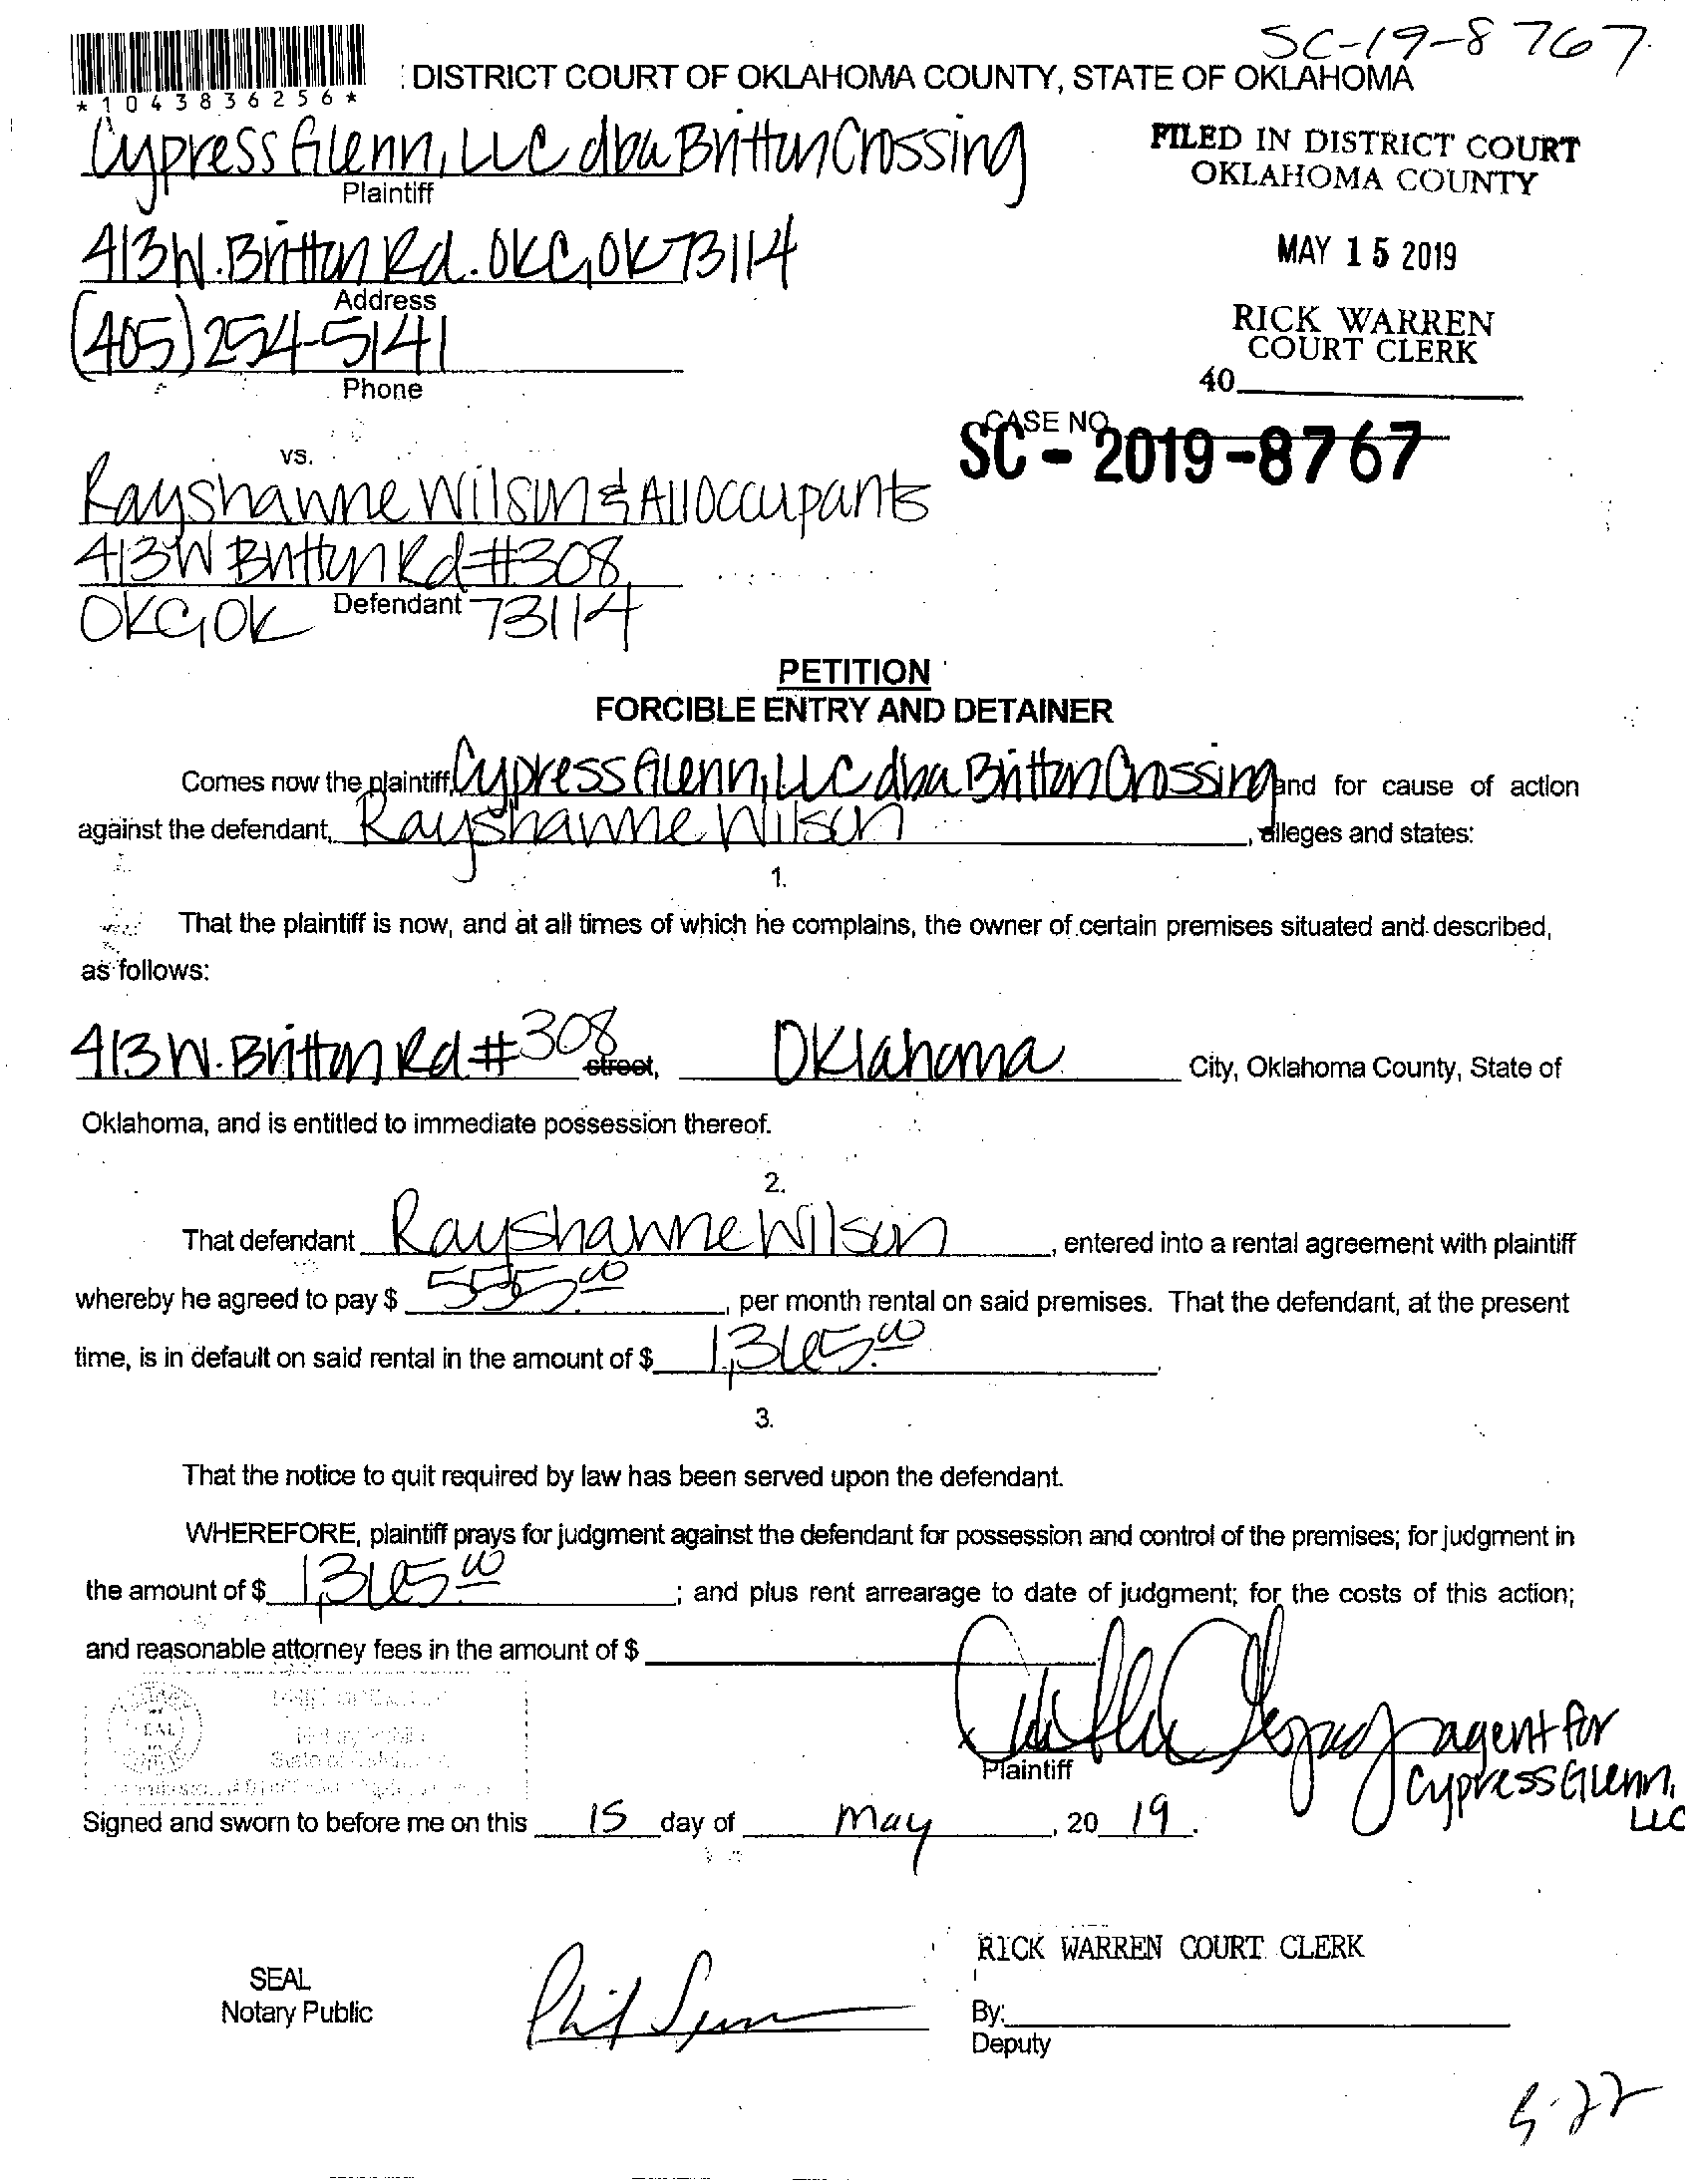 SC-19-8767
*1043836256*
DISTRICT COURT OF OKLAHOMA COUNTY, STATE OF OKLAHOMA
Cypress Glenn, LLC dba Britton Crossing
Plaintiff
FILED IN DISTRICT COURT
OKLAHOMA COUNTY
413 W. Britton Rd. OKC, OK 73114
Address
MAY 15 2019
(405) 254-5141
Phone
RICK WARREN
COURT CLERK
40
CASE NO.
SC - 2019-8767
vs.
Rayshawne Wilson & All Occupants
413 W Britton Rd #308
OKC, OK Defendant 73114
PETITION
FORCIBLE ENTRY AND DETAINER
Comes now the plaintiff, Cypress Glenn, LLC dba Britton Crossing and for cause of action
against the defendant, Rayshawne Wilson, alleges and states:
1.
That the plaintiff is now, and at all times of which he complains, the owner of certain premises situated and described,
as follows:
413 W. Britton Rd # 308 street, Oklahoma City, Oklahoma County, State of
Oklahoma, and is entitled to immediate possession thereof.
2.
That defendant Rayshawne Wilson, entered into a rental agreement with plaintiff
whereby he agreed to pay $ 555.00, per month rental on said premises. That the defendant, at the present
time, is in default on said rental in the amount of $ 1,365.00.
3.
That the notice to quit required by law has been served upon the defendant.
WHEREFORE, plaintiff prays for judgment against the defendant for possession and control of the premises; for judgment in
the amount of $ 1,365.00; and plus rent arrearage to date of judgment; for the costs of this action;
and reasonable attorney fees in the amount of $
agent for
Cypress Glenn,
LLC
Plaintiff
SEAL
Notary Public
State of
Signed and sworn to before me on this 15 day of May, 20 19.
RICK WARREN COURT CLERK
SEAL
Notary Public
By:
Deputy
5-22